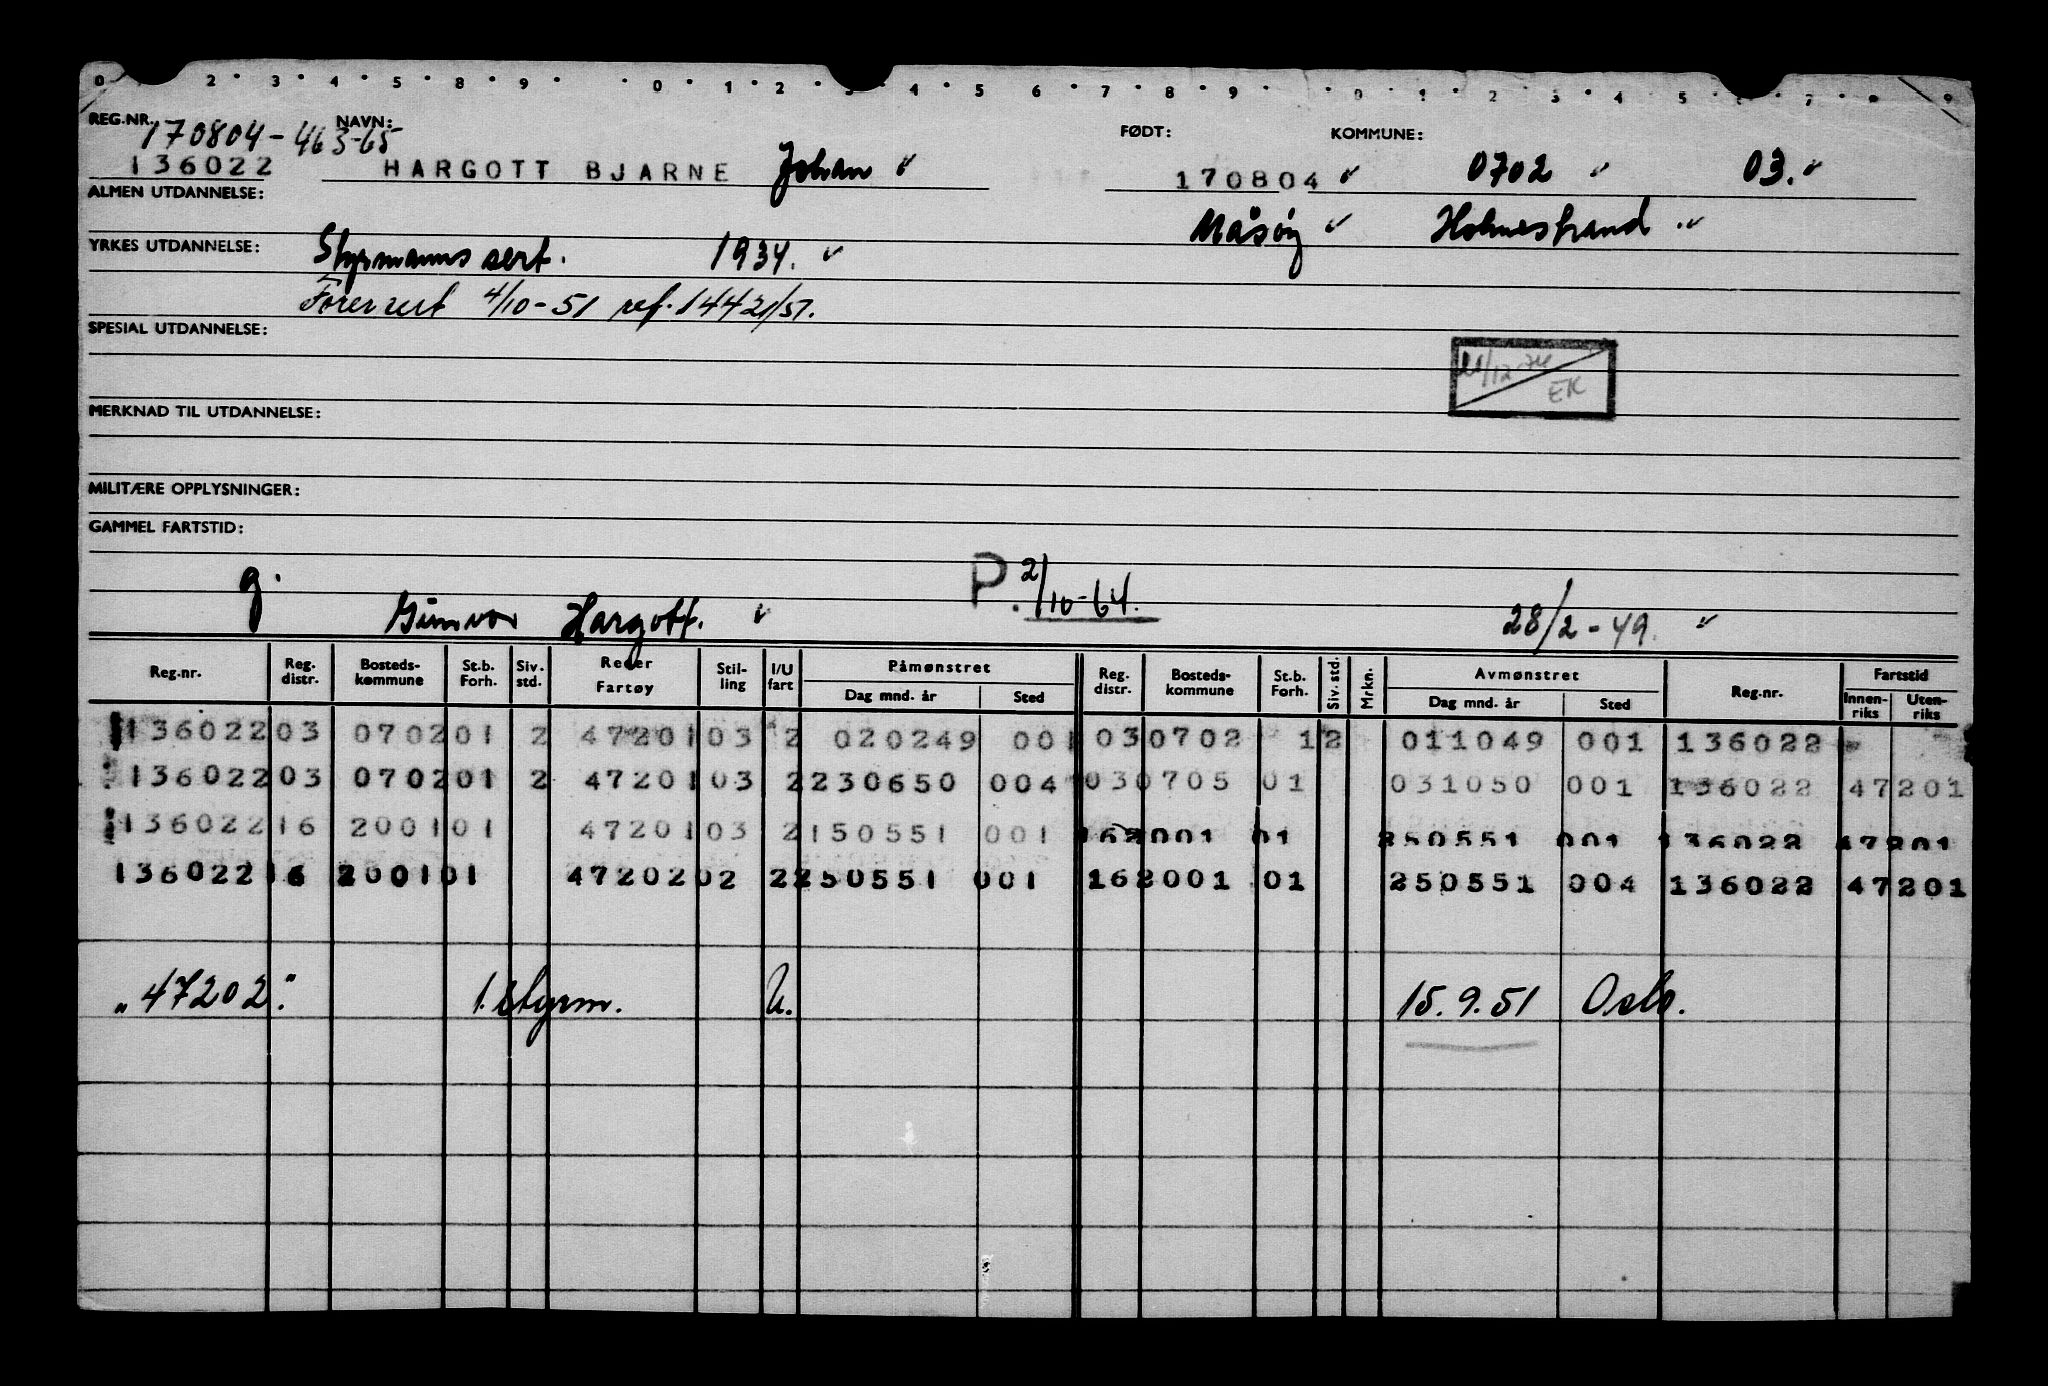 0 2 3 4 5 8 9 0 1 2 3 4 5 6 7 8 9 0 1 2 3 4 5 6 7 8 9
REG.NR. 170804-46365 NAVN: FØDT: KOMMUNE:
136022 HARGOTT BJARNE Johan 170804 0702 03.
ALMEN UTDANNELSE:
Måsøy Holmestrand
YRKES UTDANNELSE: Styrmanns sert. 1934.
Førersert 4/10-51 ref. 14421/51.
SPESIAL UTDANNELSE:
21/12-74 EK
MERKNAD TIL UTDANNELSE:
MILITÆRE OPPLYSNINGER:
GAMMEL FARTSTID:
g. P. 2/10-64.
Gunvor Hargott. 28/2-49.
Reg.nr. Reg. distr. Bosteds-kommune St.b. Forh. Siv. std. Reder Fartøy Stil-ling I/U fart Påmønstret Dag mnd. år Sted Reg. distr. Bosteds-kommune St.b. Forh. Siv. std. Mrkn. Avmønstret Dag mnd. år Sted Reg.nr. Fartstid Innen-riks Uten-riks
136022 03 0702 01 2 47201 03 2 020249 001 03 0702 1 2 011049 001 136022
136022 03 0702 01 2 47201 03 2 230650 004 03 0705 01 031050 001 136022 47201
136022 16 2001 01 47201 03 2 150551 001 16 2001 01 250551 001 136022 47201
136022 16 2001 01 47202 02 2 250551 001 16 2001 01 250551 004 136022 47201
"47202." 1. styrm. U. 15.9.51 Oslo.